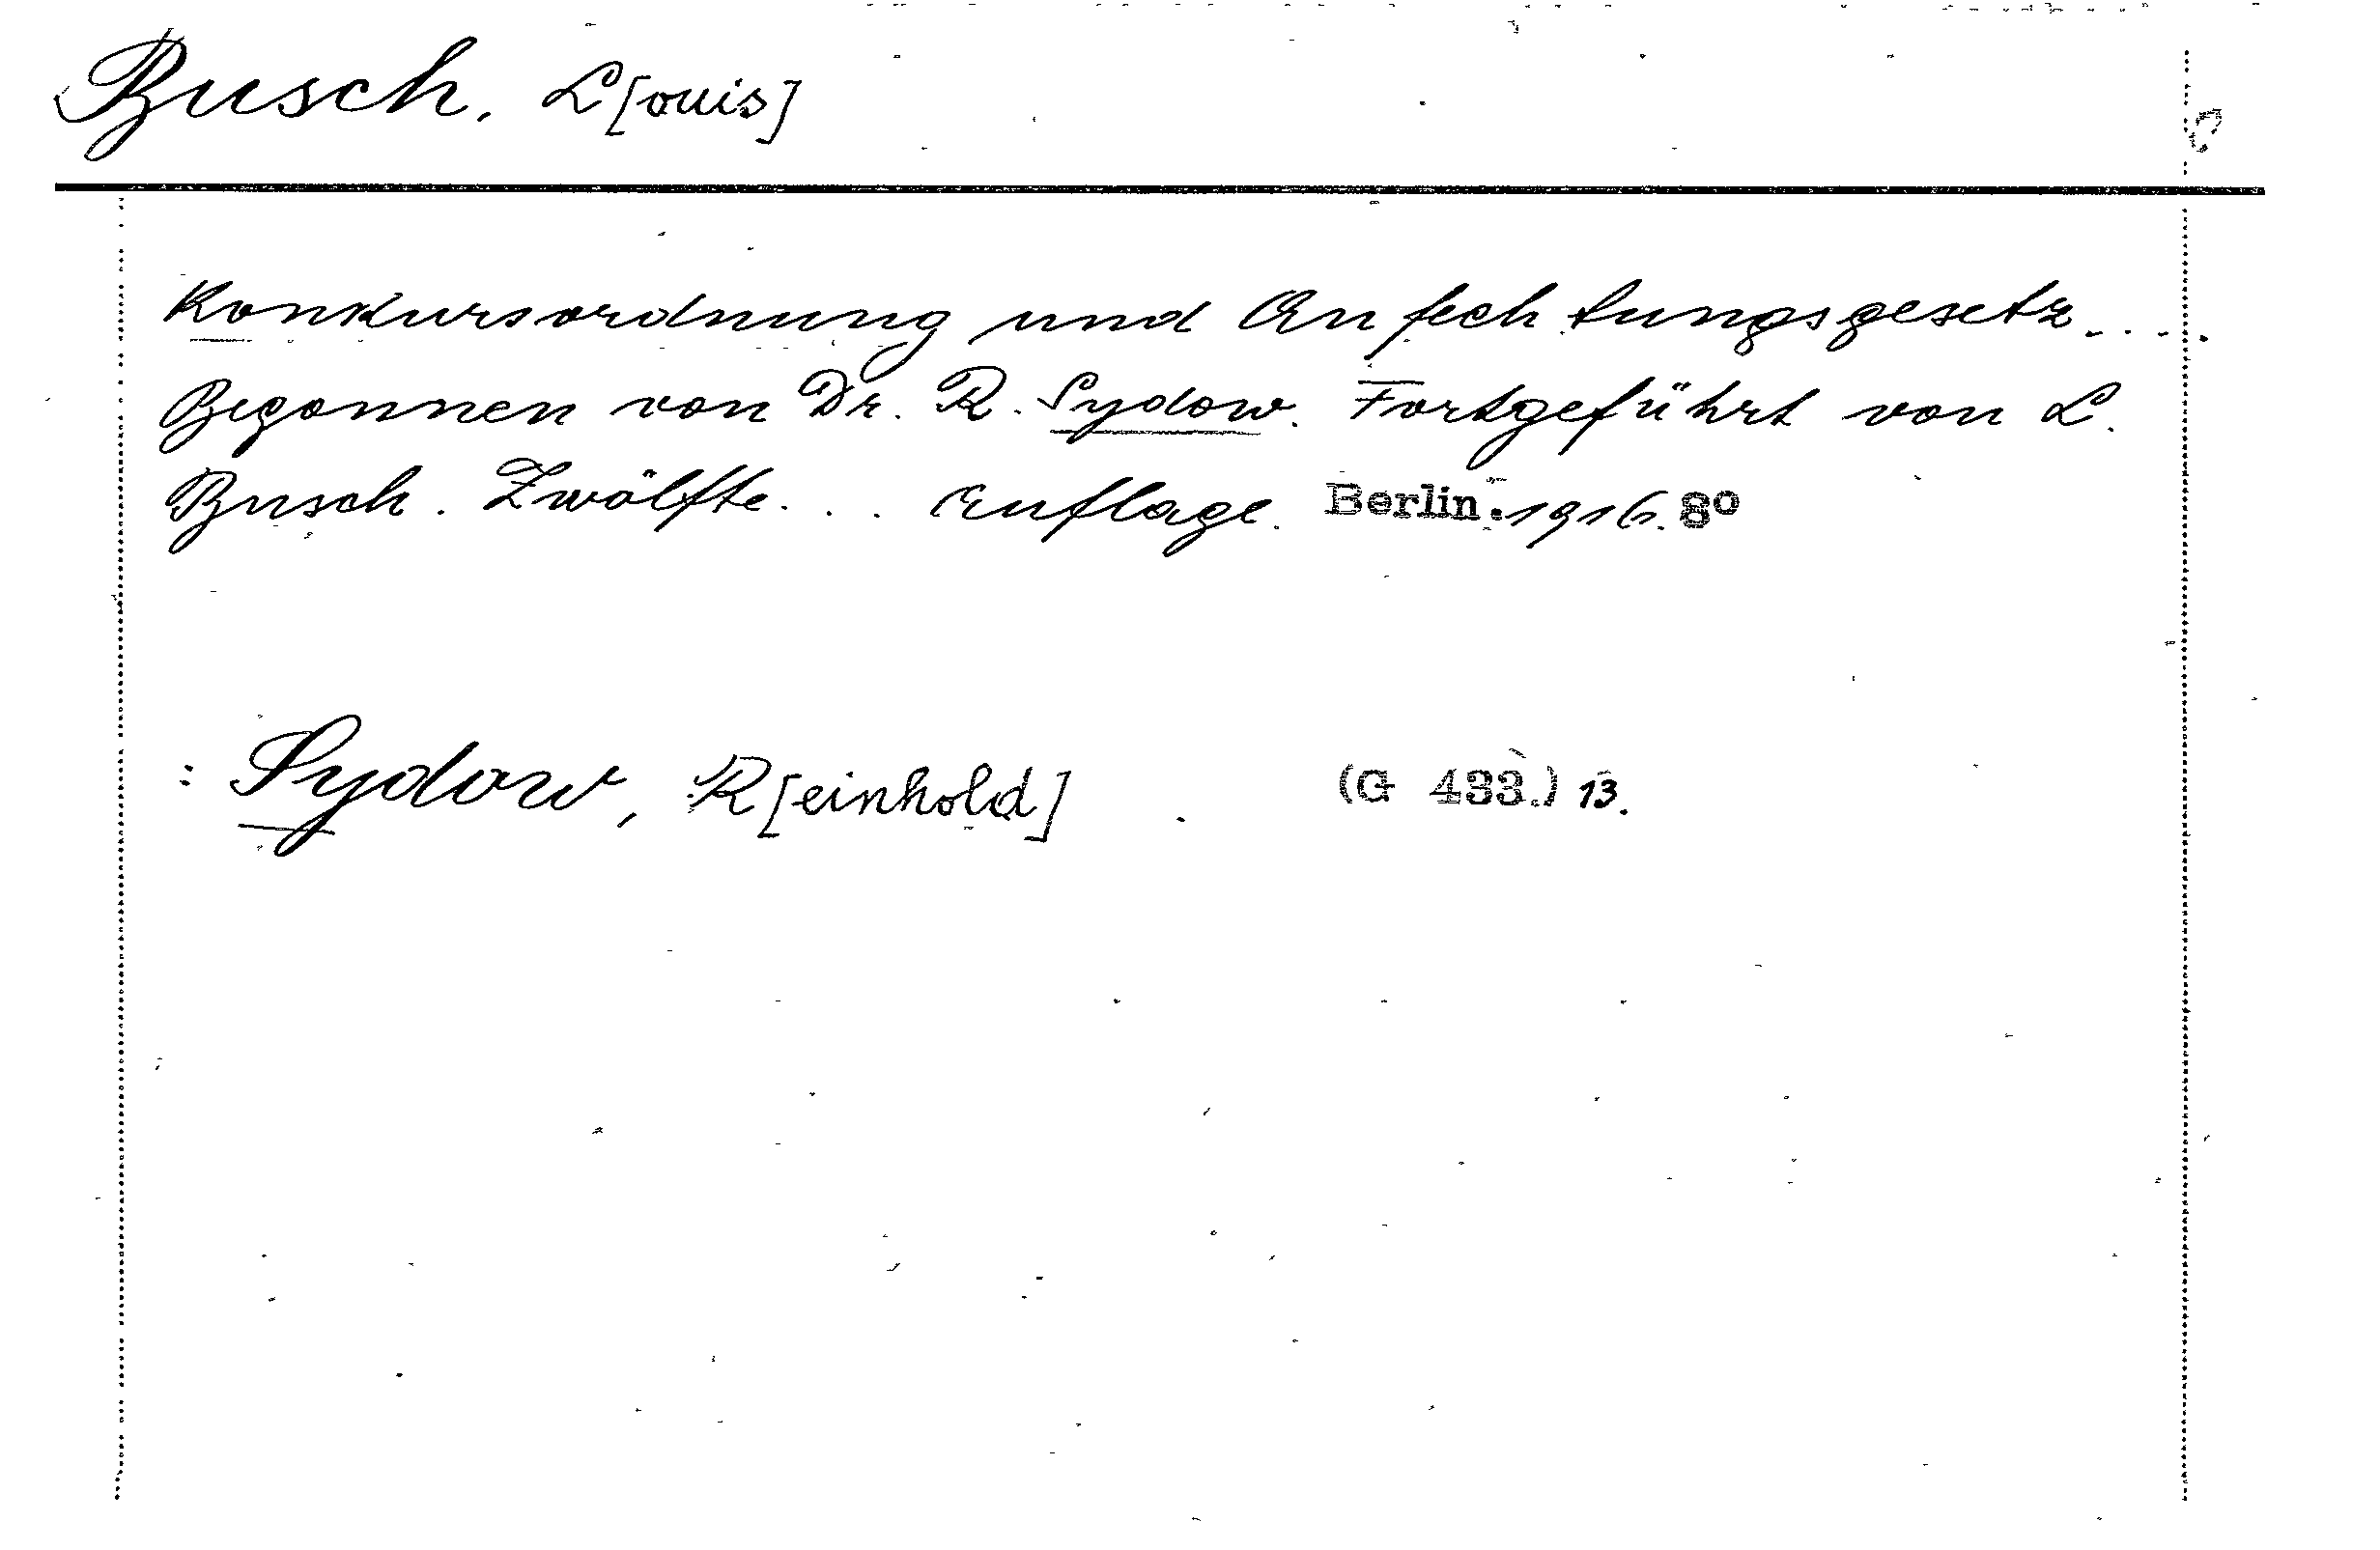 Busch, L[ouis]
Konkursordnung und Anfechtungsgesetz....
Begonnen von Dr. R. Sydow. Fortgeführt von L.
Busch. Zwölfte... Auflage. Berlin. 1916. 8o
: Sydow, R[einhold] (G 433.) 13.